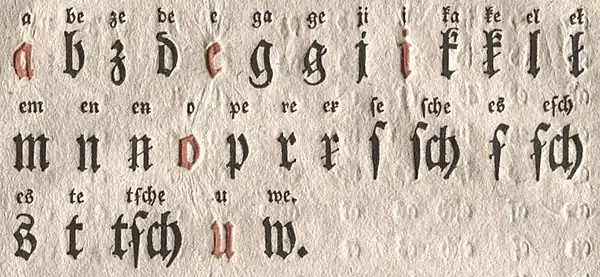 a be ze de e ga ꞡe ji i ka ꞣe el eł
a b z d e g ꞡ j i k ꞣ l ł
em en eꞥ o pe re eꞧ ſe ſche eẜ eẜch
m n ꞥ o p r ꞧ ſ ſch ẜ ẜch
es te tſche u we.
s t tſch u w.